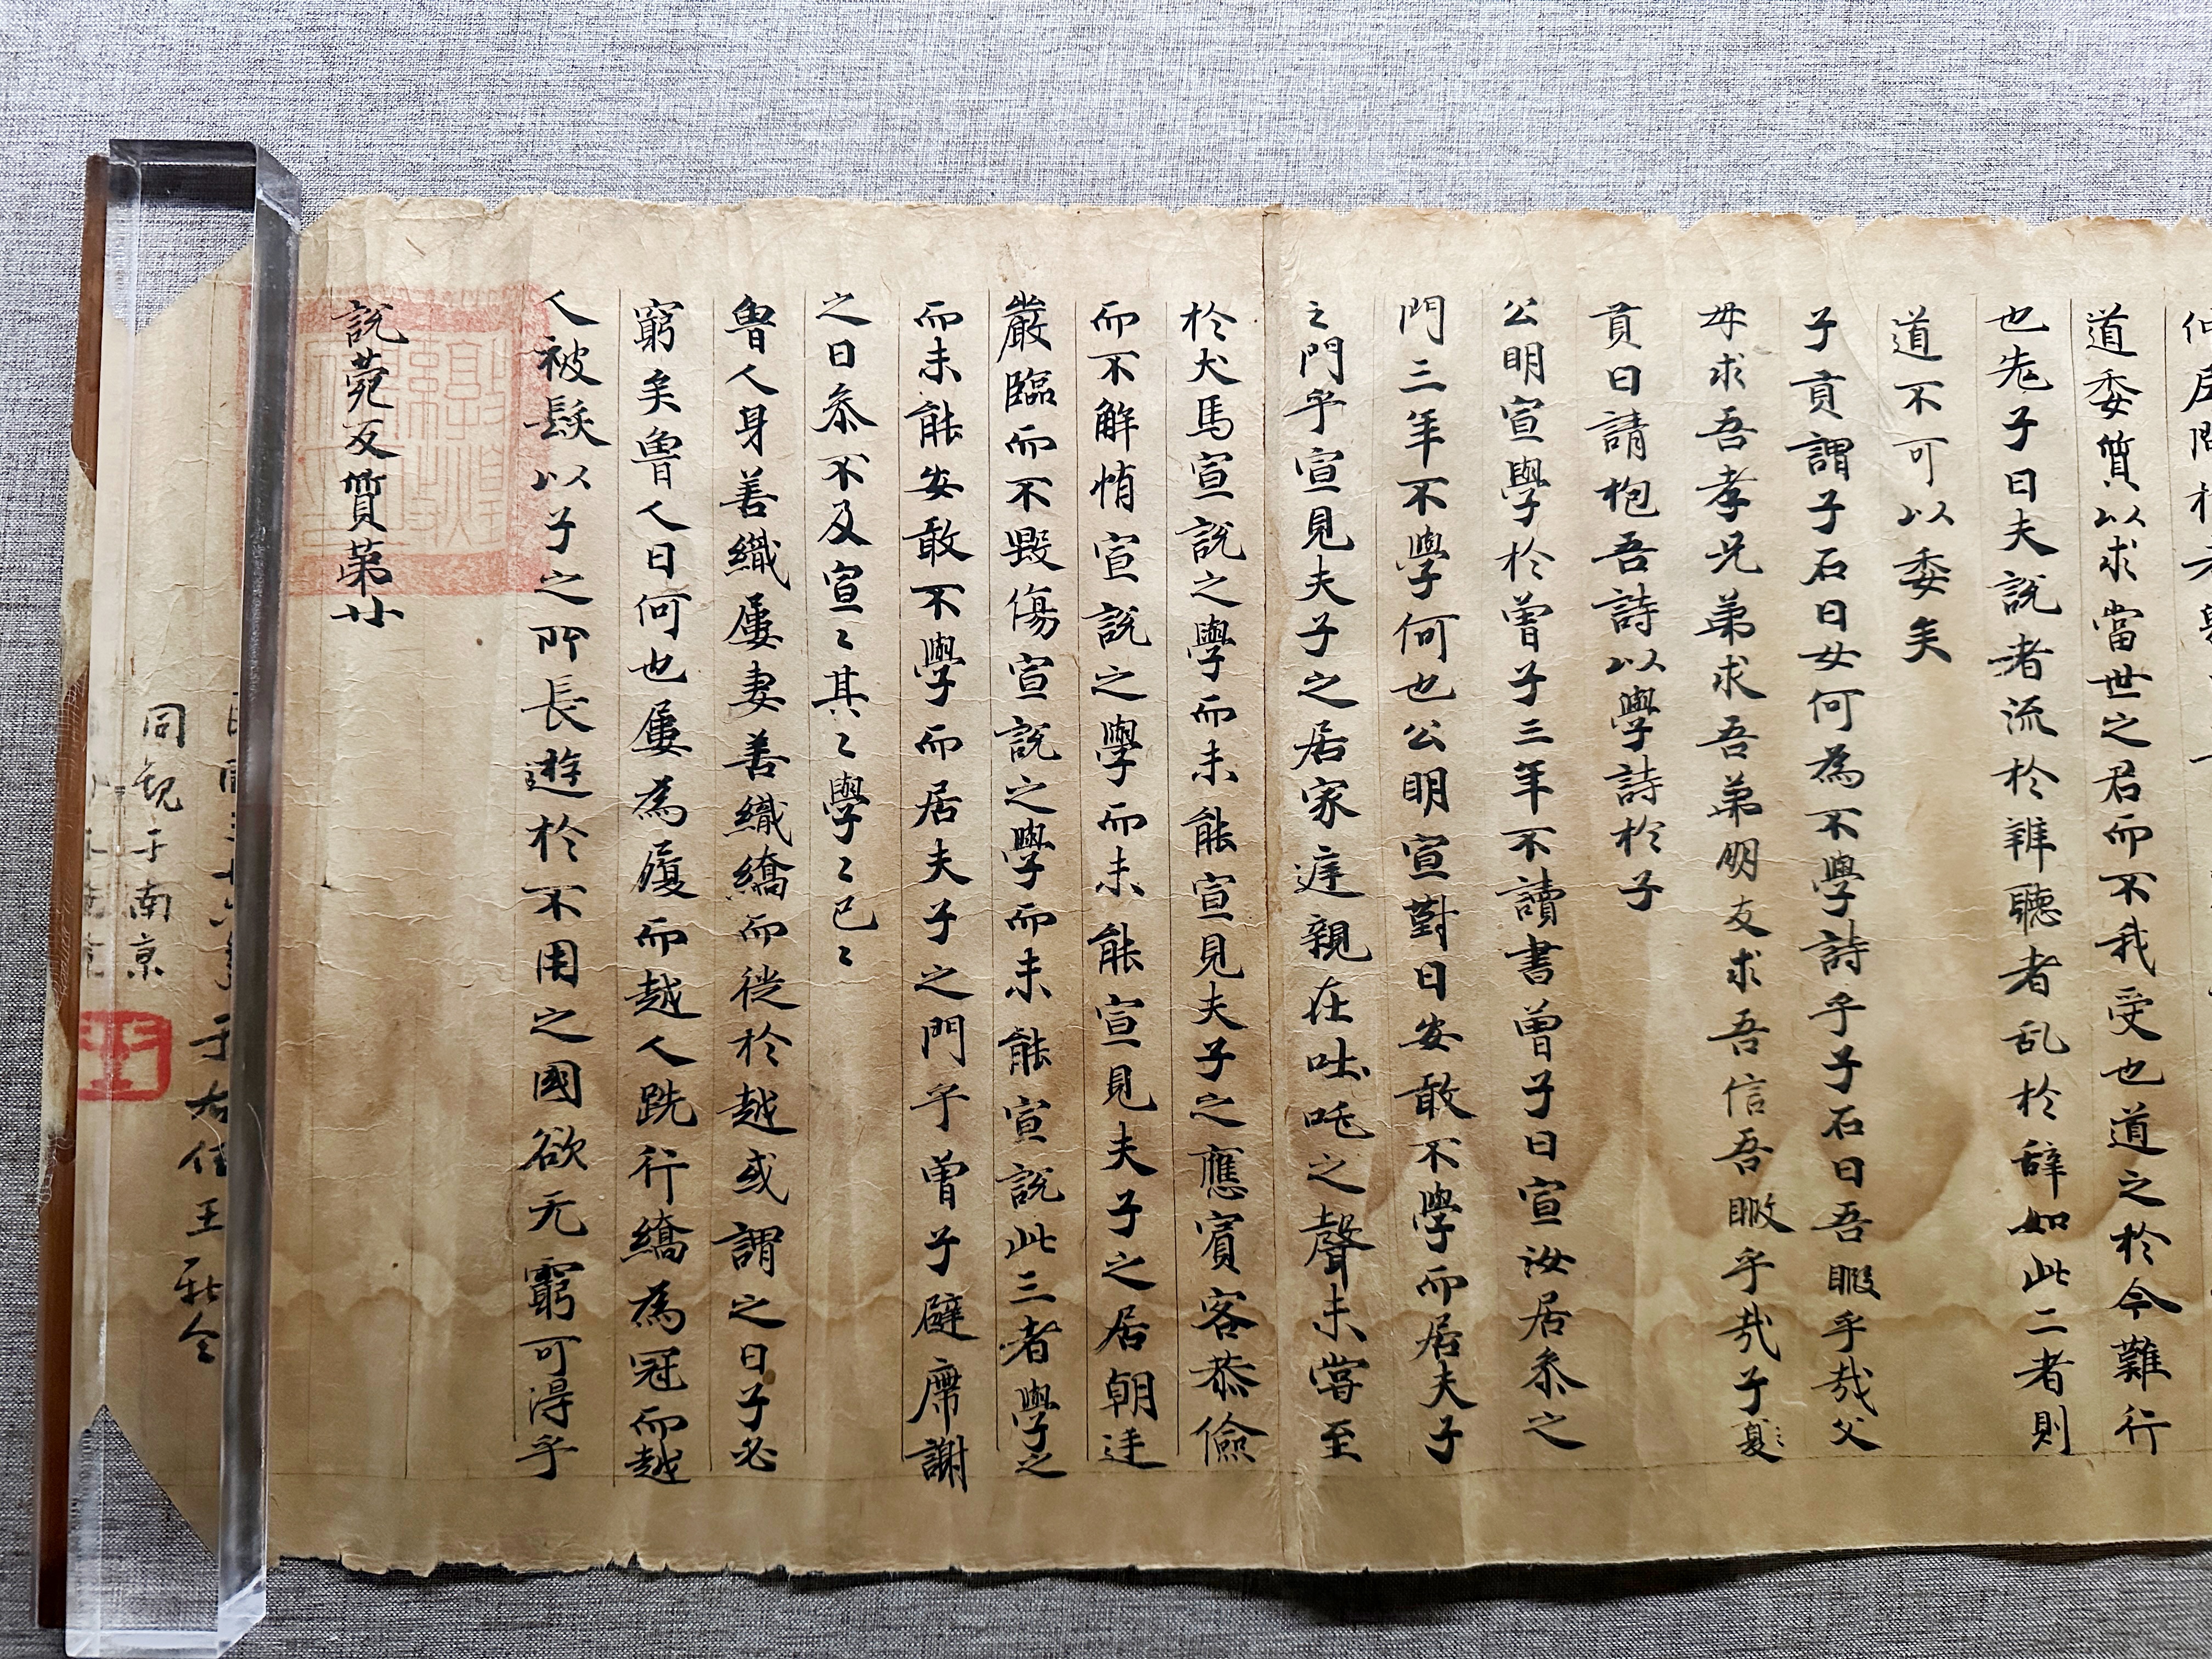 道委質以求當世之君而不我受也道之於今難行
也老子曰夫說者流於辯聽者乱於辞如此二者則
道不可以委矣
子貢謂子石曰女何為不學詩乎子石曰吾暇乎哉父
母求吾孝兄弟求吾弟朋友求吾信吾暇乎哉子
貢曰請抱吾詩以學詩於子
公明宣學於曾子三年不讀書曾子曰宣汝居叅之
門三年不學何也公明宣對曰安敢不學而居夫子
之門乎宣見夫子之居家庭親在吐吒之聲未嘗至
於犬馬宣說之學而未能宣見夫子之應賓客恭儉
而不解惰宣說之學而未能宣見夫子之居朝廷
嚴臨而不毀傷宣說之學而未能宣說此三者學之
而未能安敢不學而居夫子之門乎曾子避席謝
之曰叅不及宣〻其〻學〻已〻
魯人身善織屨妻善織縞而徙於越或謂之曰子必
窮矣魯人曰何也屨為履而越人跣行縞為冠而越
人被髮以子之所長遊於不用之國欲无窮可得乎
說菀反質第廿
于右任王新令
同觀于南京